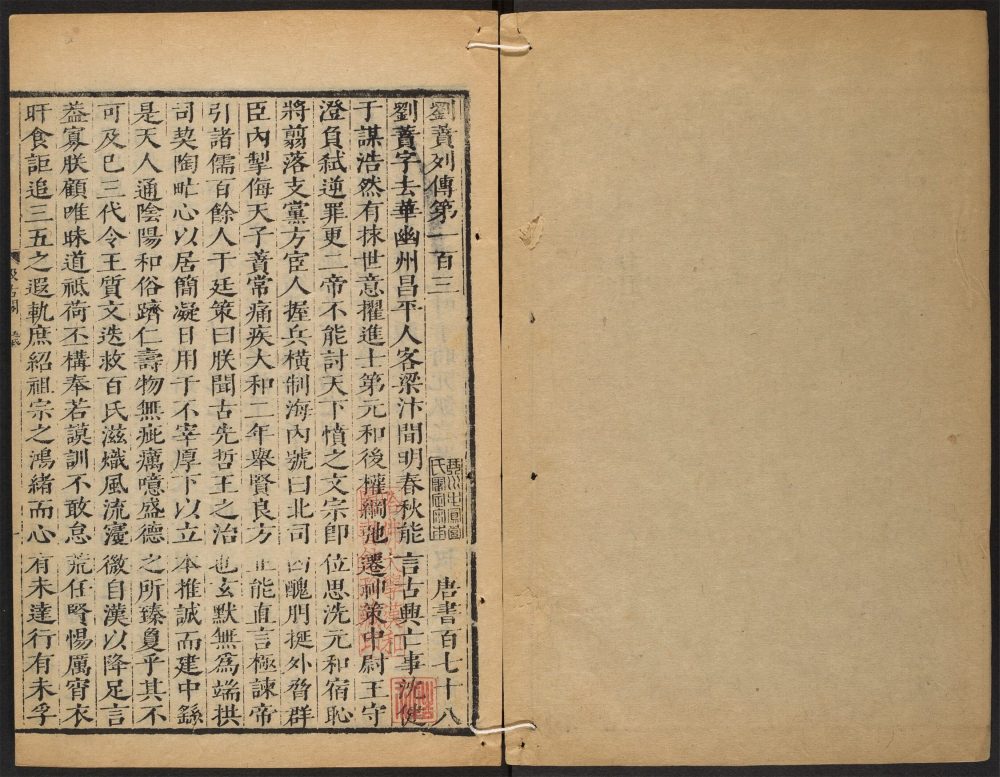 劉蕡列傳第一百三 唐書百七十八
劉蕡字去華幽州昌平人客梁汴間明春秋能言古興亡事沈健
于謀浩然有捄世意擢進士第元和後權綱弛遷神策中尉王守
澄負弑逆罪更二帝不能討天下憤之文宗即位思洗元和宿恥
將翦落支黨方宦人握兵橫制海內號曰北司凶醜朋挻外脅群
臣內掣侮天子蕡常痛疾大和二年舉賢良方正能直言極諫帝
引諸儒百餘人于廷策曰朕聞古先哲王之治也玄默無為端拱
司契陶甿心以居簡凝日用于不宰厚下以立本推誠而建中繇
是天人通陰陽和俗躋仁壽物無疵癘噫盛德之所臻夐乎其不
可及已三代令王質文迭救百氏滋熾風流寖微自漢以降足言
葢寡朕顧唯昧道祗荷丕構奉若謨訓不敢怠荒任賢惕厲宵衣
旰食詎追三五之遐軌庶紹祖宗之鴻緒而心有未達行有未孚